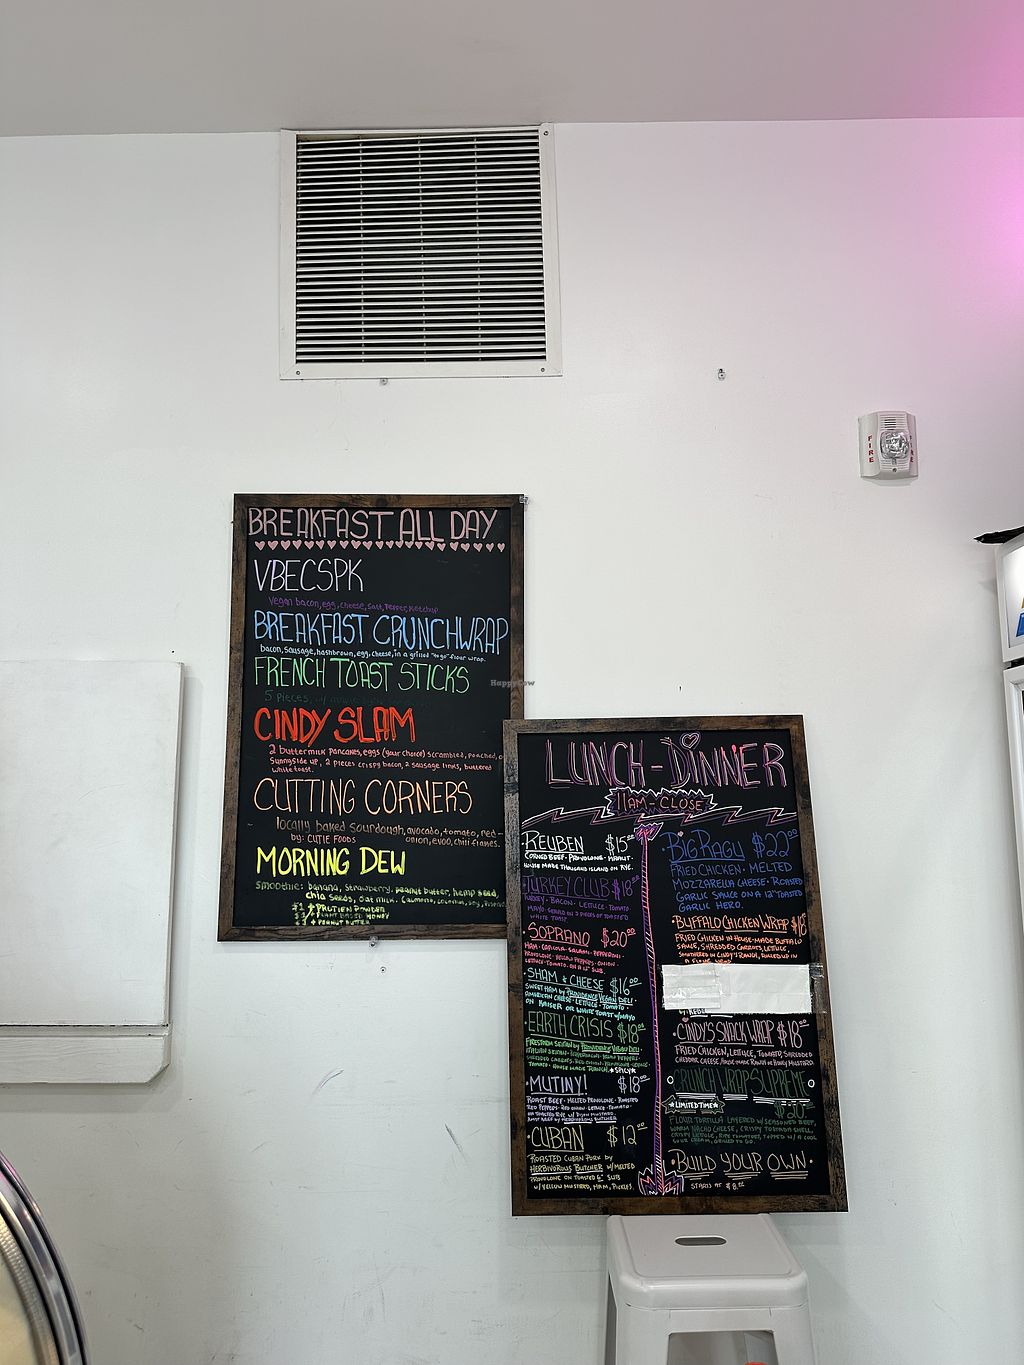 BREAKFAST ALL DAY
VBECSPK
Vegan bacon, egg, cheese, salt, pepper, ketchup
BREAKFAST CRUNCHWRAP
bacon, sausage, hashbrown, egg, cheese, in a grilled "to go" flour wrap.
FRENCH TOAST STICKS
5 pieces, w/
CINDY SLAM
2 buttermilk pancakes, eggs (your choice) scrambled, poached, o
Sunnyside up, 2 pieces crispy bacon, 2 sausage links, buttered
white toast.
CUTTING CORNERS
locally baked sourdough, avocado, tomato, red-
by: CUTIE FOODS onion, evoo, chili flakes.
MORNING DEW
Smoothie: banana, strawberry, peanut butter, hemp seed,
chia seeds, oat milk.
$1 + PROTIEN POWDER
+ PLANT BASED HONEY
+ PEANUT BUTTER
HappyCow
LUNCH-DINNER
11AM-CLOSE
REUBEN $15
CORNED BEEF · PROVOLONE · KRAUT ·
HOUSE MADE THOUSAND ISLAND ON RYE.
TURKEY CLUB $18
TURKEY · BACON · LETTUCE · TOMATO
MAYO · SERVED ON 3 PIECES OF TOASTED
WHITE TOAST.
·SOPRANO $20.00
HAM · CAPICOLA · SALAMI · PEPPERONI ·
PROVOLONE · YELLOW PEPPERS · ONION ·
LETTUCE · TOMATO ON A 12" SUB.
·SHAM & CHEESE $16.00
SWEET HAM by PROVIDENCE VEGAN DELI ·
AMERICAN CHEESE · LETTUCE · TOMATO ·
ON KAISER OR WHITE TOAST w/MAYO
·EARTH CRISIS $18.00
FIRESTORM SEITAN by PROVIDENCE VEGAN DELI ·
TOMATO · HOUSE MADE RANCH, ★SPICY★
·MUTINY! $18.00
ROAST BEEF · MELTED PROVOLONE · ROASTED
RED PEPPERS · RED ONION · LETTUCE · TOMATO ·
ON TOASTED RYE w/ DIJON MUSTARD
ROAST BEEF by HERBIVOROUS BUTCHER
·CUBAN $12.00
ROASTED CUBAN PORK by
HERBIVOROUS BUTCHER w/MELTED
PROVOLONE ON TOASTED 6" SUB
w/YELLOW MUSTARD, HAM, PICKLES.
·BIG RAGU $22.00
FRIED CHICKEN · MELTED
MOZZARELLA CHEESE · ROASTED
GARLIC SAUCE ON A 12" TOASTED
GARLIC HERO.
·BUFFALO CHICKEN WRAP $18
FRIED CHICKEN IN HOUSE-MADE BUFFALO
SAUCE, SHREDDED CARROTS, LETTUCE,
SMOTHERED IN CINDY'S RANCH, ROLLED UP IN
A FLOUR WRAP
·CINDY'S SNACK WRAP $18.00
FRIED CHICKEN, LETTUCE, TOMATO, SHREDDED
CHEDDAR CHEESE, HOUSE-MADE RANCH or HONEY MUSTARD.
CRUNCH WRAP SUPREME
★LIMITED TIME★ $20
FLOUR TORTILLA LAYERED w/SEASONED BEEF,
WARM NACHO CHEESE, CRISPY TOSTADA SHELL,
CRISPY LETTUCE, RIPE TOMATOES, TOPPED w/ A COOL
SOUR CREAM, GRILLED TO GO.
·BUILD YOUR OWN·
STARTS AT $8.00
FIRE
FIRE